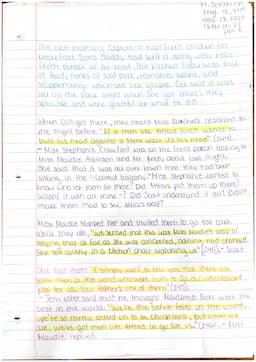 The next morning, Calpurnia had fried chicken for
breakfast. Tom's Daddy had sent it along with rolls
of food, hunks of salt pork, tomatoes, beans, and
scuppernongs which are like grapes. Cal said it was
all on the back steps when she got there, they
appreciate and were grateful for what he did.
When Dill got there, they heard Miss Rachel's reaction to
the night before. "If a man like Atticus Finch wants to
butt his head against a stone wall it's his head"
- Miss Stephanie Crawford was on the front porch talking to
Miss Maudie Atkinson and Mr. Avery about last night.
She said that it was all over town that they had been
sitting in the "Colored balcony." Miss Stephanie wanted to
know who let them sit there? Did Atticus put them up there?
Wasn't it with all those? Did Scout understand it all? Didn't
make them mad to see Atticus beat?
Miss Maudie stopped her and invited them to go eat cake.
While they ate, "we sensed that this was Miss Maudie's way of
saying that as far as she was concerned, nothing had changed.
She sat quietly in a kitchen chair watching us" - Scout
She told them "I simply want to tell you that there are
some men in this world who were born to do our unpleasant
jobs for us. Your father's one of them"
- Jem later said that he thought Maycomb folks were the
best in the world. "We're the safest folks in the world,
we're so rarely called on to be Christians, but when we
are, we've got men like Atticus to go for us" - Miss
Maudie replied.